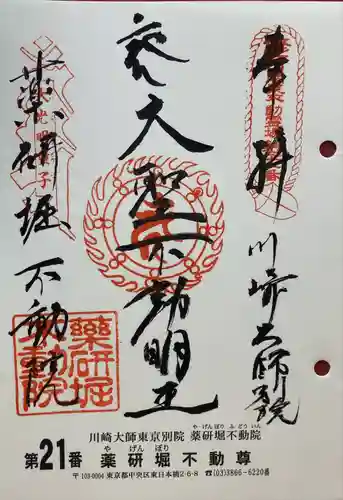 奉拝
川崎大師別院
本大聖不動明王
薬研堀不動院
薬研堀不動院
川崎大師東京別院 薬研堀不動院
やげんぼり ふどういん
第21番 薬研堀不動尊
やげんぼり
〒103-0004 東京都中央区東日本橋2-6-8 ☎(03)3866-6220番